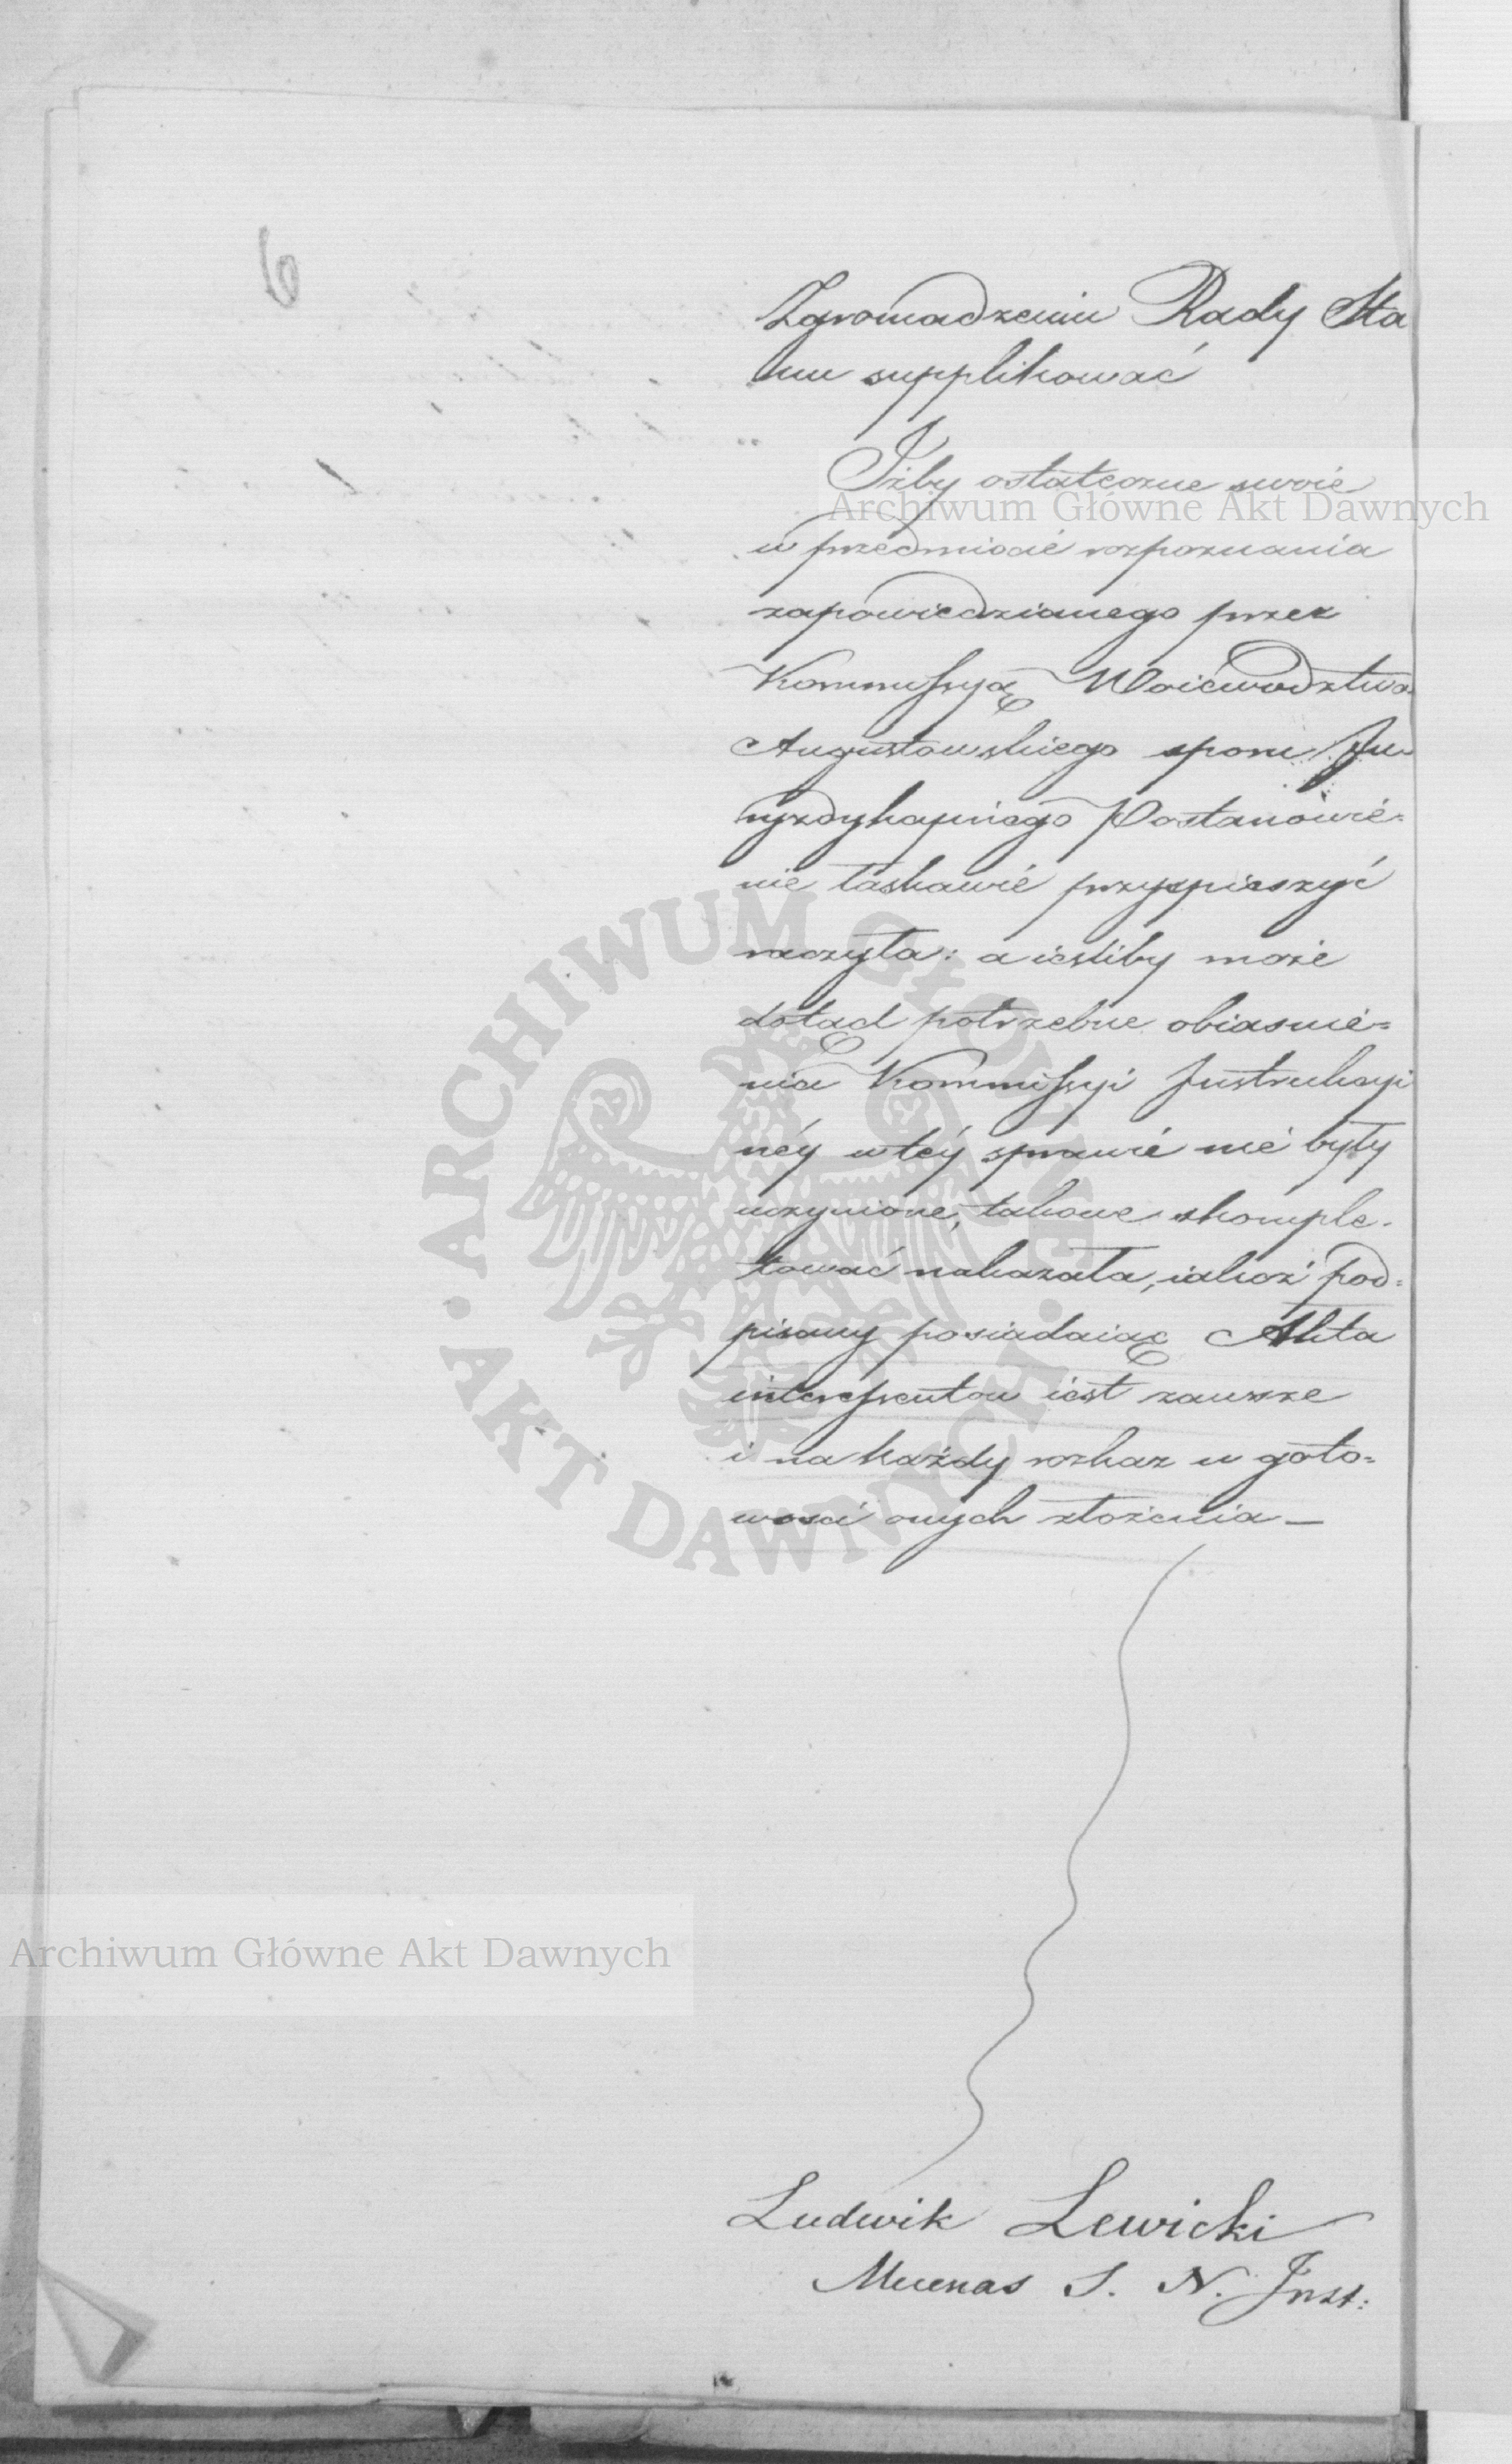 6
Zgromadzeniu Rady Sta
nu supplikować
Jżby ostateczne swoie
w przedmiocie rozpoznania
zapowiedzianego przez
Kommissyą Woiewodztwa
Augustowskiego sporu Ju
ryzdykcyinego Postanowie=
nie łaskawie przyspieszyć
raczyła: a iesliby może
dotąd potrzebne obiasnie=
nia Kommissyi Instrukcyi
néy w téy sprawie nie były
uczynione, takowe skomple-
tować nakazała, iakoż pod=
pisany posiadaiąc Akta
interessentow iest zawsze
i na każdy rozkaz w goto=
wosci onych złożenia —
Ludwik Lewicki
Mecenas S. N. Inst:
Archiwum Główne Akt Dawnych
Archiwum Główne Akt Dawnych
ARCHIWUM GŁÓWNE
AKT DAWNYCH